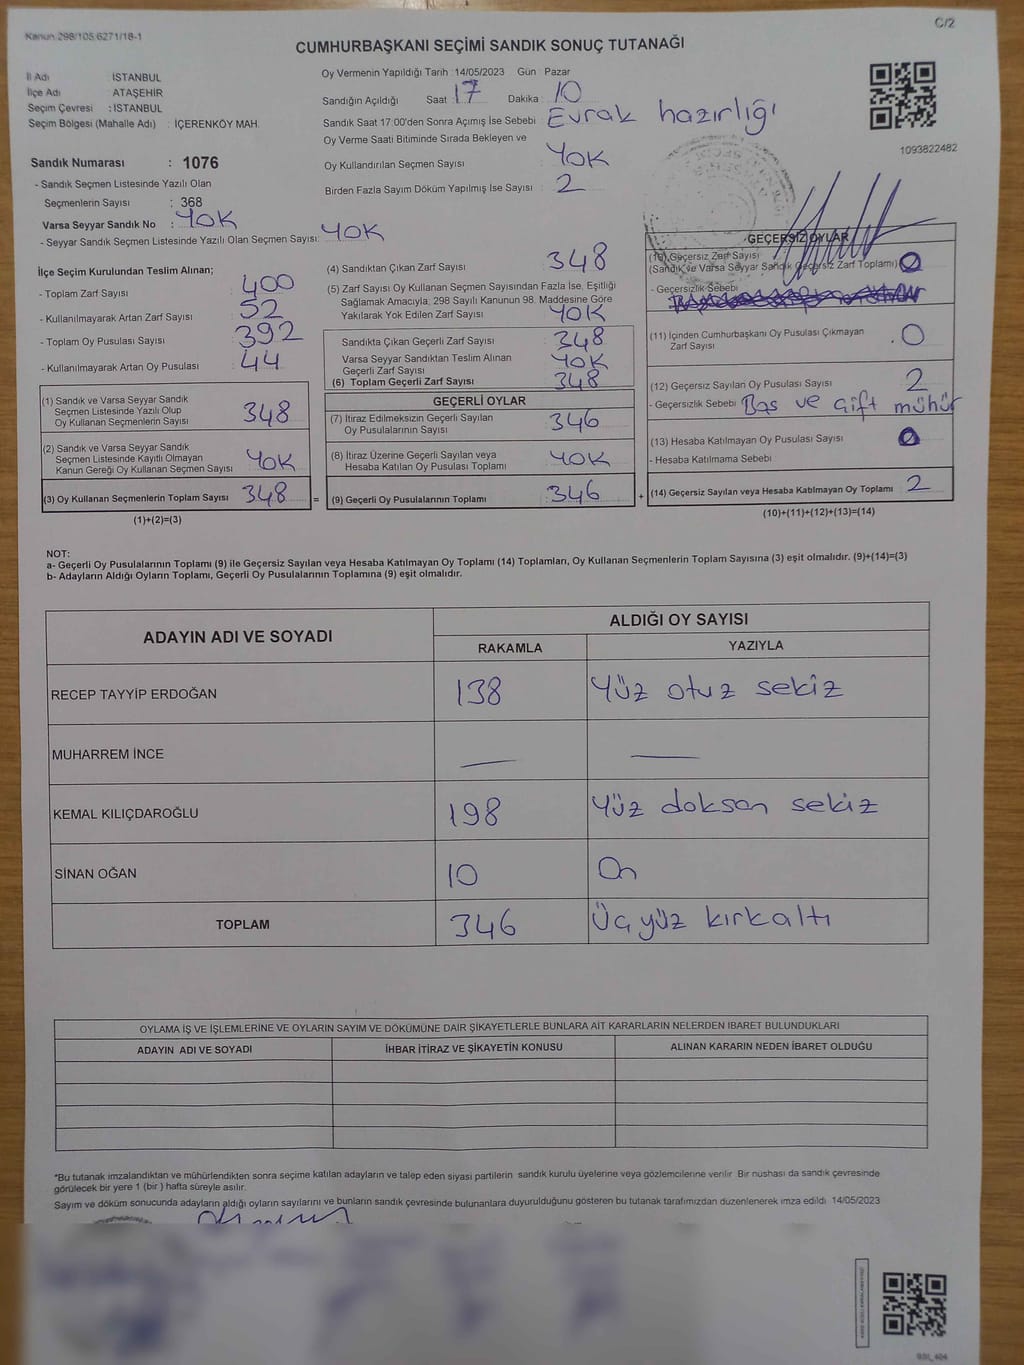 Kanun 298/105,6271/18-1
C/2
CUMHURBAŞKANI SEÇİMİ SANDIK SONUÇ TUTANAĞI
İl Adı : İSTANBUL
İlçe Adı : ATAŞEHİR
Seçim Çevresi : İSTANBUL
Seçim Bölgesi (Mahalle Adı) : İÇERENKÖY MAH.
Sandık Numarası : 1076
- Sandık Seçmen Listesinde Yazılı Olan
Seçmenlerin Sayısı : 368
Varsa Seyyar Sandık No : YOK
- Seyyar Sandık Seçmen Listesinde Yazılı Olan Seçmen Sayısı: YOK
Oy Vermenin Yapıldığı Tarih :14/05/2023 Gün Pazar
Sandığın Açıldığı Saat 17 Dakika 10
Sandık Saat 17:00'den Sonra Açımış İse Sebebi : Evrak hazırlığı
Oy Verme Saati Bitiminde Sırada Bekleyen ve
Oy Kullandırılan Seçmen Sayısı : YOK
Birden Fazla Sayım Döküm Yapılmış İse Sayısı : 2
1093822482
İlçe Seçim Kurulundan Teslim Alınan;
- Toplam Zarf Sayısı : 400
- Kullanılmayarak Artan Zarf Sayısı : 52
- Toplam Oy Pusulası Sayısı : 392
- Kullanılmayarak Artan Oy Pusulası : 44
(1) Sandık ve Varsa Seyyar Sandık
Seçmen Listesinde Yazılı Olup
Oy Kullanan Seçmenlerin Sayısı : 348
(2) Sandık ve Varsa Seyyar Sandık
Seçmen Listesinde Kayıtlı Olmayan
Kanun Gereği Oy Kullanan Seçmen Sayısı : YOK
(3) Oy Kullanan Seçmenlerin Toplam Sayısı : 348 =
(1)+(2)=(3)
(4) Sandıktan Çıkan Zarf Sayısı : 348
(5) Zarf Sayısı Oy Kullanan Seçmen Sayısından Fazla İse, Eşitliği
Sağlamak Amacıyla; 298 Sayılı Kanunun 98. Maddesine Göre
Yakılarak Yok Edilen Zarf Sayısı : YOK
Sandıkta Çıkan Geçerli Zarf Sayısı : 348
Varsa Seyyar Sandıktan Teslim Alınan
Geçerli Zarf Sayısı : YOK
(6) Toplam Geçerli Zarf Sayısı : 348
GEÇERLİ OYLAR
(7) İtiraz Edilmeksizin Geçerli Sayılan
Oy Pusulalarının Sayısı : 346
(8) İtiraz Üzerine Geçerli Sayılan veya
Hesaba Katılan Oy Pusulası Toplamı : YOK
(9) Geçerli Oy Pusulalarının Toplamı : 346 +
GEÇERSİZ OYLAR
(10) Geçersiz Zarf Sayısı
(Sandık ve Varsa Seyyar Sandık Geçersiz Zarf Toplamı) : 0
- Geçersizlik Sebebi :
(11) İçinden Cumhurbaşkanı Oy Pusulası Çıkmayan
Zarf Sayısı : 0
(12) Geçersiz Sayılan Oy Pusulası Sayısı : 2
- Geçersizlik Sebebi : Boş ve çift mühür
(13) Hesaba Katılmayan Oy Pusulası Sayısı : 0
- Hesaba Katılmama Sebebi :
(14) Geçersiz Sayılan veya Hesaba Katılmayan Oy Toplamı : 2
(10)+(11)+(12)+(13)=(14)
NOT:
a- Geçerli Oy Pusulalarının Toplamı (9) ile Geçersiz Sayılan veya Hesaba Katılmayan Oy Toplamı (14) Toplamları, Oy Kullanan Seçmenlerin Toplam Sayısına (3) eşit olmalıdır. (9)+(14)=(3)
b- Adayların Aldığı Oyların Toplamı, Geçerli Oy Pusulalarının Toplamına (9) eşit olmalıdır.
ADAYIN ADI VE SOYADI ALDIĞI OY SAYISI
RAKAMLA YAZIYLA
RECEP TAYYİP ERDOĞAN 138 Yüz otuz sekiz
MUHARREM İNCE — —
KEMAL KILIÇDAROĞLU 198 Yüz doksan sekiz
SİNAN OĞAN 10 On
TOPLAM 346 Üç yüz kırkaltı
OYLAMA İŞ VE İŞLEMLERİNE VE OYLARIN SAYIM VE DÖKÜMÜNE DAİR ŞİKAYETLERLE BUNLARA AİT KARARLARIN NELERDEN İBARET BULUNDUKLARI
ADAYIN ADI VE SOYADI İHBAR İTİRAZ VE ŞİKAYETİN KONUSU ALINAN KARARIN NEDEN İBARET OLDUĞU
*Bu tutanak imzalandıktan ve mühürlendikten sonra seçime katılan adayların ve talep eden siyasi partilerin sandık kurulu üyelerine veya gözlemcilerine verilir. Bir nushası da sandık çevresinde
görülecek bir yere 1 (bir ) hafta süreyle asılır.
Sayım ve döküm sonucunda adayların aldığı oyların sayılarını ve bunların sandık çevresinde bulunanlara duyurulduğunu gösteren bu tutanak tarafımızdan düzenlenerek imza edildi. 14/05/2023